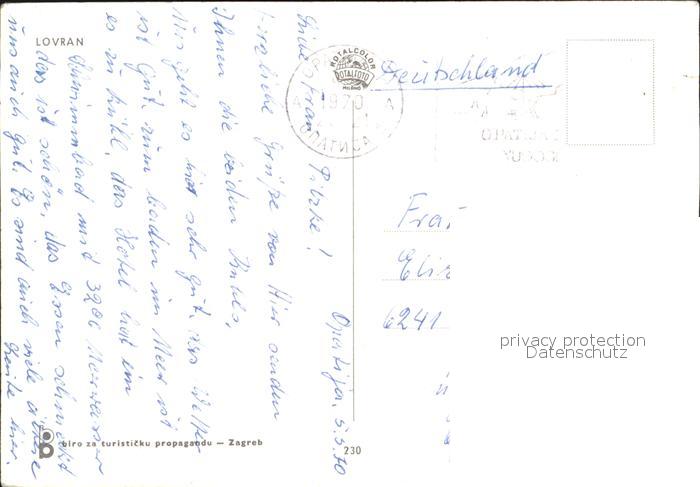 LOVRAN
ROTALCOLOR
ROTALFOTO
MILANO
1970
ОПАТИЈА
Deutschland
Opatija, 5.5.70
Liebe Frau
Grüße von Hier senden
Ihnen die beiden
Uns geht es hier sehr gut, das Wetter
ist gut, zum baden im Meer ist
es zu kühl, das Hotel hat ein
Schwimmbad mit 32°C Meerwasser
das ist schön, das Essen schmeckt
uns auch gut. Es sind auch viele ältere
Leute hier.
Frau
6241
privacy protection
Datenschutz
biro za turističku propagandu — Zagreb
230